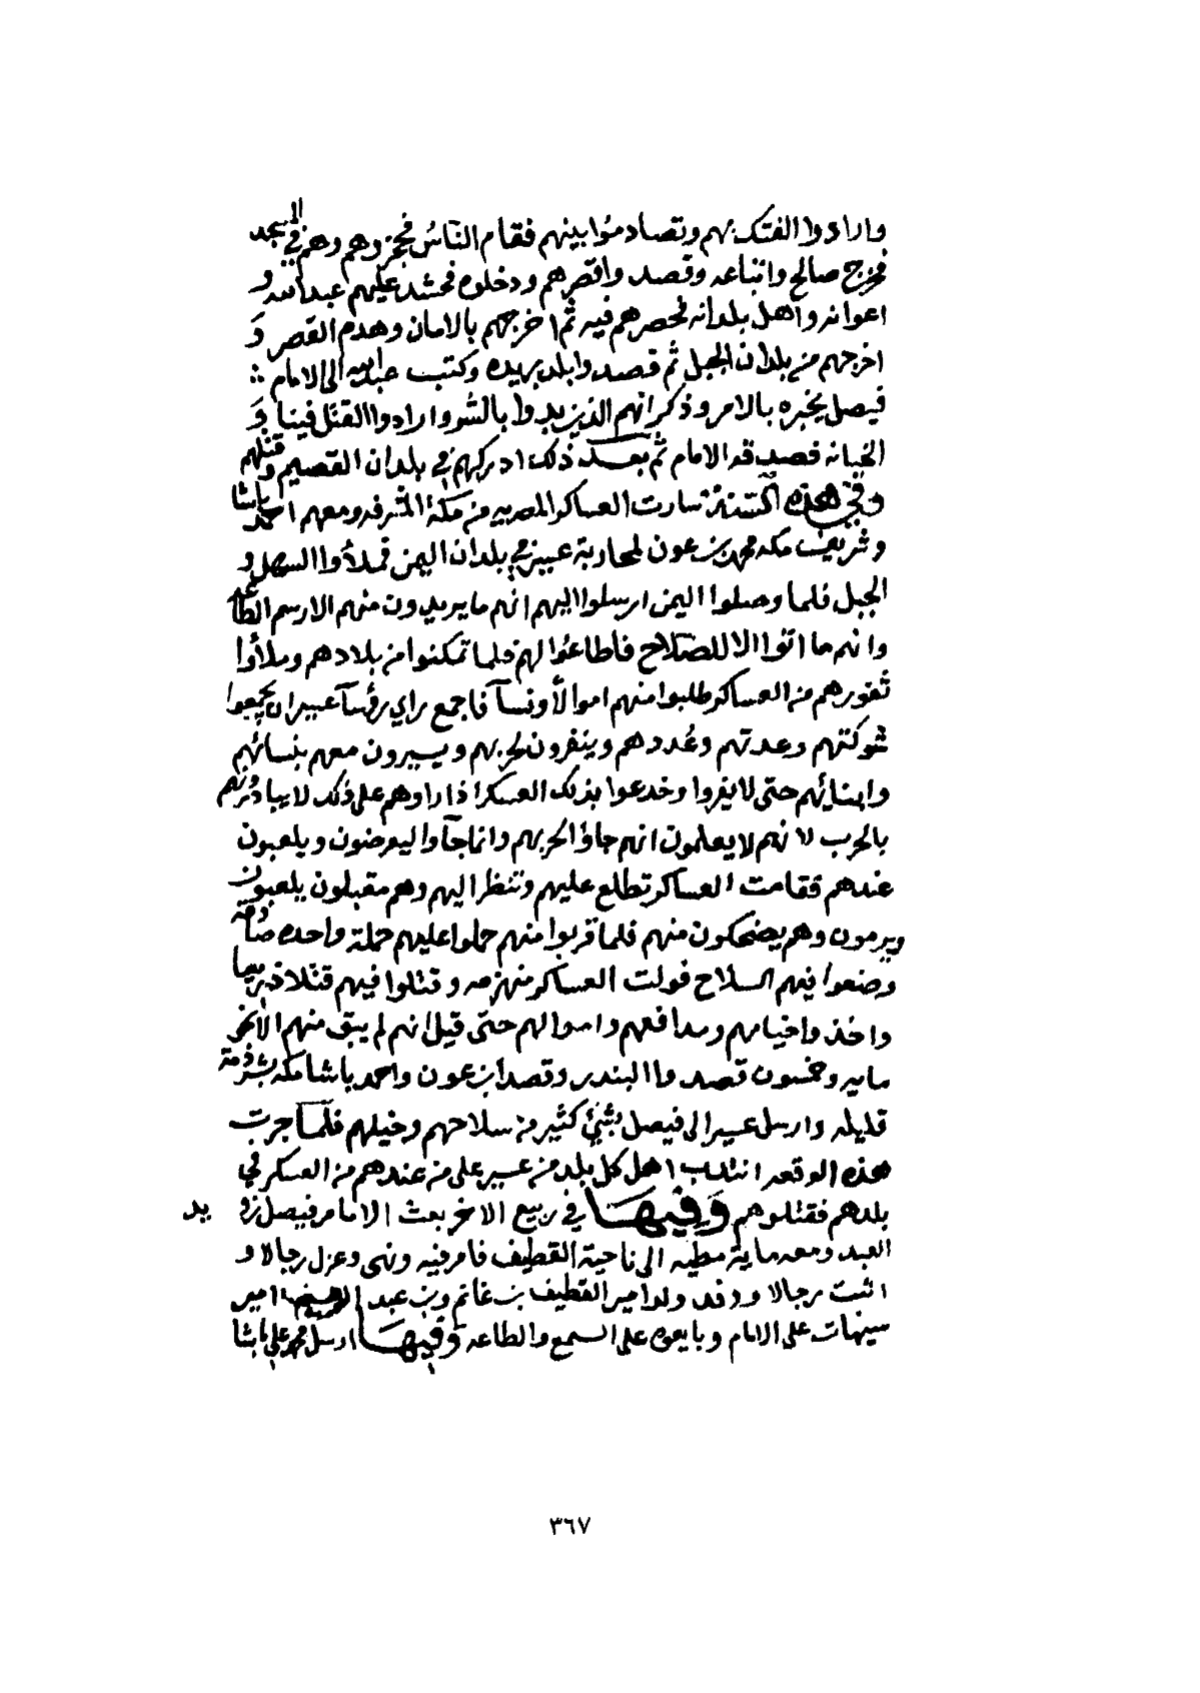 وارادوا الفتك بهم وتصادموا بينهم فقام الناس فحجزوهم وهم في المسجد
فخرج صالح واتباعه وقصدوا قصرهم ودخلوه فحشد عليهم عبدالله و
اعوانه وأهل بلدانه فحصرهم فيه ثم اخرجهم بالامان وهدم القصر وَ
اخرجهم من بلدان الجبل ثم قصدوا بلد بريده وكتب عبدالله الى الامام
فيصل يخبره بالامر وذكر انهم الذين بدوا بالشر وارادوا القتل فينا وَ
الخيانه فصدقه الامام ثم بعد ذلك ادركهم في بلدان القصيم وقتلهم
وفي هذه السنة سارت العساكر المصريه من مكة المشرفه ومعهم احمد باشا
وشريف مكه محمد بن عون لمحاربة عسير في بلدان اليمن فملأوا السهل و
الجبل فلما وصلوا اليمن ارسلوا اليهم انهم ما يريدون منهم الا رسم الطاعه
وانهم ما اتوا الا للصّلاح فاطاعوا لهم فلما تمكنوا من بلادهم وملأوا
ثغورهم من العساكر طلبوا منهم اموالاً ونسآ فاجمع راي رؤسآ عسير ان يجمعوا
شوكتهم وعدتهم وعُددهم وينفرون لحربهم ويسيرون معهم بنسائهم
وابنائهم حتى لا يفروا وخدعوا بذلك العسكر اذا راوهم على ذلك لا يبادرونهم
بالحرب لانهم لا يعلمون انهم جاؤا لحربهم وانما جآوا ليعرضون ويلعبون
عندهم فقامت العساكر تطلع عليهم وتنظر اليهم وهم مقبلون يلعبون
ويرمون وهم يضحكون منهم فلما قربوا منهم حملوا عليهم حملة واحده صادقة
وضعوا فيهم السلاح فولت العساكر منهزمه وقتلوا فيهم قتلا ذريعا
واخذوا خيامهم ومدافعهم واموالهم حتى قيل انهم لم يبق منهم الا نحو
مايه وخمسون قصدوا البندر وقصد ابن عون واحمد باشا مكه بشرذمة
قليله وارسل عسير الى فيصل بشئ كثير من سلاحهم وخيلهم فلما جرت
هذه الوقعه انتدب اهل كل بلد من عسير على من عندهم من العسكر في
بلدهم فقتلوهم وَفيهَا في ربيع الاخر بعث الامام فيصل زويد
العبد ومعه ماية مطيه الى ناحية القطيف فامر فيه ونهى وعزل رجالا و
اثبت رجالا ووفد ولد امير القطيف بن غانم وبن عبد الرحيم امير
سيهات على الامام وبايعوه على السمع والطاعه وَفيهَا ارسل محمد علي باشا
٣٦٧